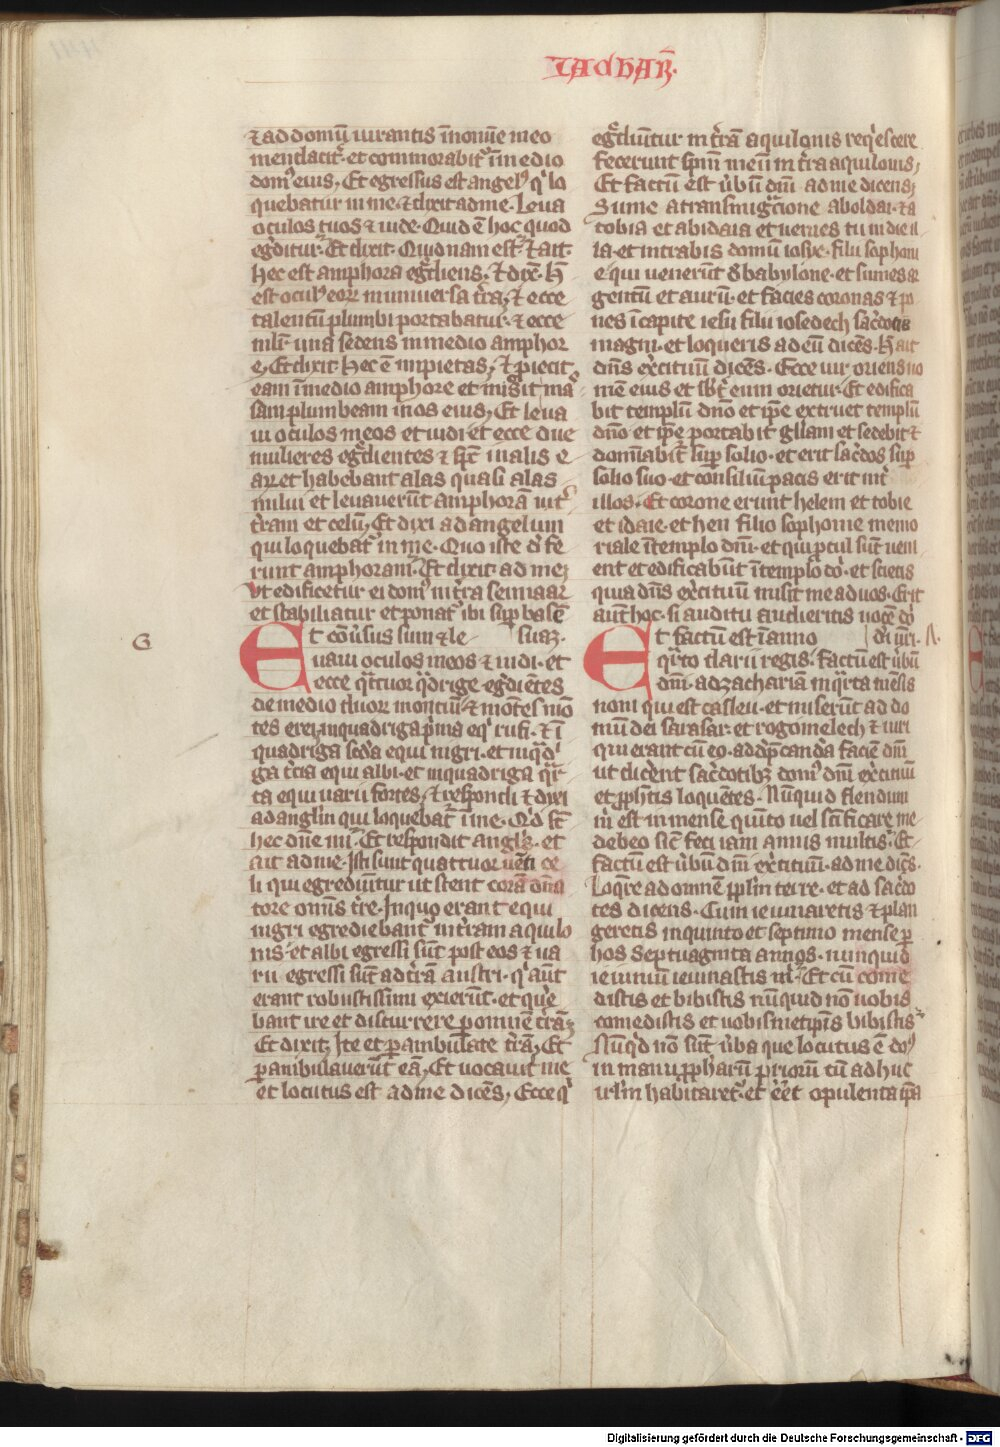 ZACHAR̄.
⁊ ad domū iurantis ī noı̄e meo
mendacit᷑. et commorabit᷑ ī medio
domꝰ eius, Et egressus est angelꝰ qͥ lo
quebatur in me. ⁊ dixit ad me. Leua
oculos tuos ⁊ uide. Quid ē hoc quod
eg̃ditur. Et dixit. Quid nam est. ⁊ ait.
Hec est amphora eg̃diens. ⁊ dix̄. h̄
est oculꝰ eoꝝ in uniuersa t̃ra, ⁊ ecce
talentū plumbi portabatur. ⁊ ecce
mlı̄r una sedens in medio amphor
e, Et dixit hec ē impietas, ⁊ ꝓiecit
eam ī medio amphore et misit ma
sam plumbeam in os eius, Et leua
ui oculos meos et uidi et ecce due
mulieres eg̃dientes ⁊ sp̄c in alis e
aꝝ et habebant alas quasi alas
milui et leuauerūt amphorā int̃
t̃ram et celū, Et dixi ad angelum
qui loquebat᷑ in me. Quo iste d̄fe
runt amphoram. Et dixit ad me,
Vt edificetur ei domꝰ in t̃ra sennaar
et stabiliatur et ponat᷑ ibi suꝑ basē
suaꝫ.
G
Et cōũsus sum ⁊ le
uaui oculos meos ⁊ uidi. et
ecce qͣttuor qͣdrige eg̃diētes
de medio duoꝝ montiū ⁊ mōtes mō
tes erei, in quadriga pͥma eqͥ rufi. ⁊ ī
quadriga sc̄da equi nigri. et in qͣdͥ
ga t̃cia equi albi. et in quadriga qͣr
ta equi uarii fortes, ⁊ respondi ⁊ dixi
ad angl̄m qui loquebat᷑ ī me. Qͥd st̄
hec dn̄e mi. Et respondit angl̄s. et
ait ad me. Isti sunt quattuor uēti ce
li qui egrediūtur ut stent corā dn̄a
tore om̄is t̃re. In quo erant equi
nigri egrediebant᷑ in t̃ram aquilo
nis et albi egressi sūt post eos ⁊ ua
rii egressi sūt ad t̃rā austri. qͥ aūt
erant robustissimi exierūt. et q̃re
bant ire et discurrere ꝑ omnē t̃rā,
Et dixit, Ite et ꝑambulate t̃rā, Et
ꝑambulauerūt eā, Et uocauit me
et locutus est ad me dicēs, Ecce qͥ
eg̃diūtur in t̃rā aquilonis reqͥescere
fecerunt sp̄m meū in t̃ra aquilonis,
Et factū est ũbū dn̄i ad me dicens,
Sume a transmigͣcione ab oldai. ⁊ a
tobia et ab idaia et uenies tu in die il
la. et intrabis domū iosye. filii sophoni
e qui uenerūt d̄ babylone. et sumes ar
gentū et aurū. et facies coronas ⁊ po
nes ī capite iesu filii iosedech sac̃dotis
magni. et loqueris ad eū dicēs. h̄ ait
dn̄s ex̃cituū dicēs. Ecce uir oriens no
mē eius et sbt̃ eum orietur. Et edifica
bit templū dn̄o et ip̄e extruet templū
dn̄o et ip̄e portabit gl̄iam et sedebit ⁊
domīabit᷑ suꝑ solio. et erit sac̃dos suꝑ
solio suo et consiliū pacis erit int̃
illos. Et corone erunt helem et tobie
et idaie. et hen filio sophonie memo
riale ī templo dn̄i. et qui ꝓcul sūt ueni
ent et edificabūt ī templo dō. et scietis
quia dn̄s ex̃cituū misit me ad uos. Erit
aūt hoc. si auditu audieritis uocē dō
dī ūri. A.
Et factū est ī anno
qͣrto darii regis. factū est ũbū
dn̄i. ad zachariā in qͣrta mēsis
noni qui est casleu. et miserūt ad do
mū dei sarasar. et rogomelech ⁊ uiri
qui erant cū eo. ad dꝑcandā faciē dn̄i
ut dicerent sac̃dotibꝫ domꝰ dn̄i ex̃cituū
et ꝓph̄tis loquētes. Nūquid flendum
m̄ est in mense quīto uel sc̄ificare me
debeo sic̄ feci iam annis multis. Et
factū est ũbū dn̄i ex̃cituū. ad me dicēs.
Loqͥre ad omnē ppl̄m terre. et ad sac̃do
tes dicens. Cum ieiunaretis ⁊ plan
geretis in quinto et septimo mense ꝑ
hos septuaginta annos. nunquid
ieiuniū ieiunastis m̄. Et cū come
distis et bibistis nūquid nō uobis
comedistis et uobismetip̄is bibistis
Nūqͥd nō sūt ũba que locutus ē dn̄s
in manu ꝓpharū priorū cū adhuc
ir̄lm habitaret᷑. et eēt opulenta ip̄a
Digitalisierung gefördert durch die Deutsche Forschungsgemeinschaft - DFG